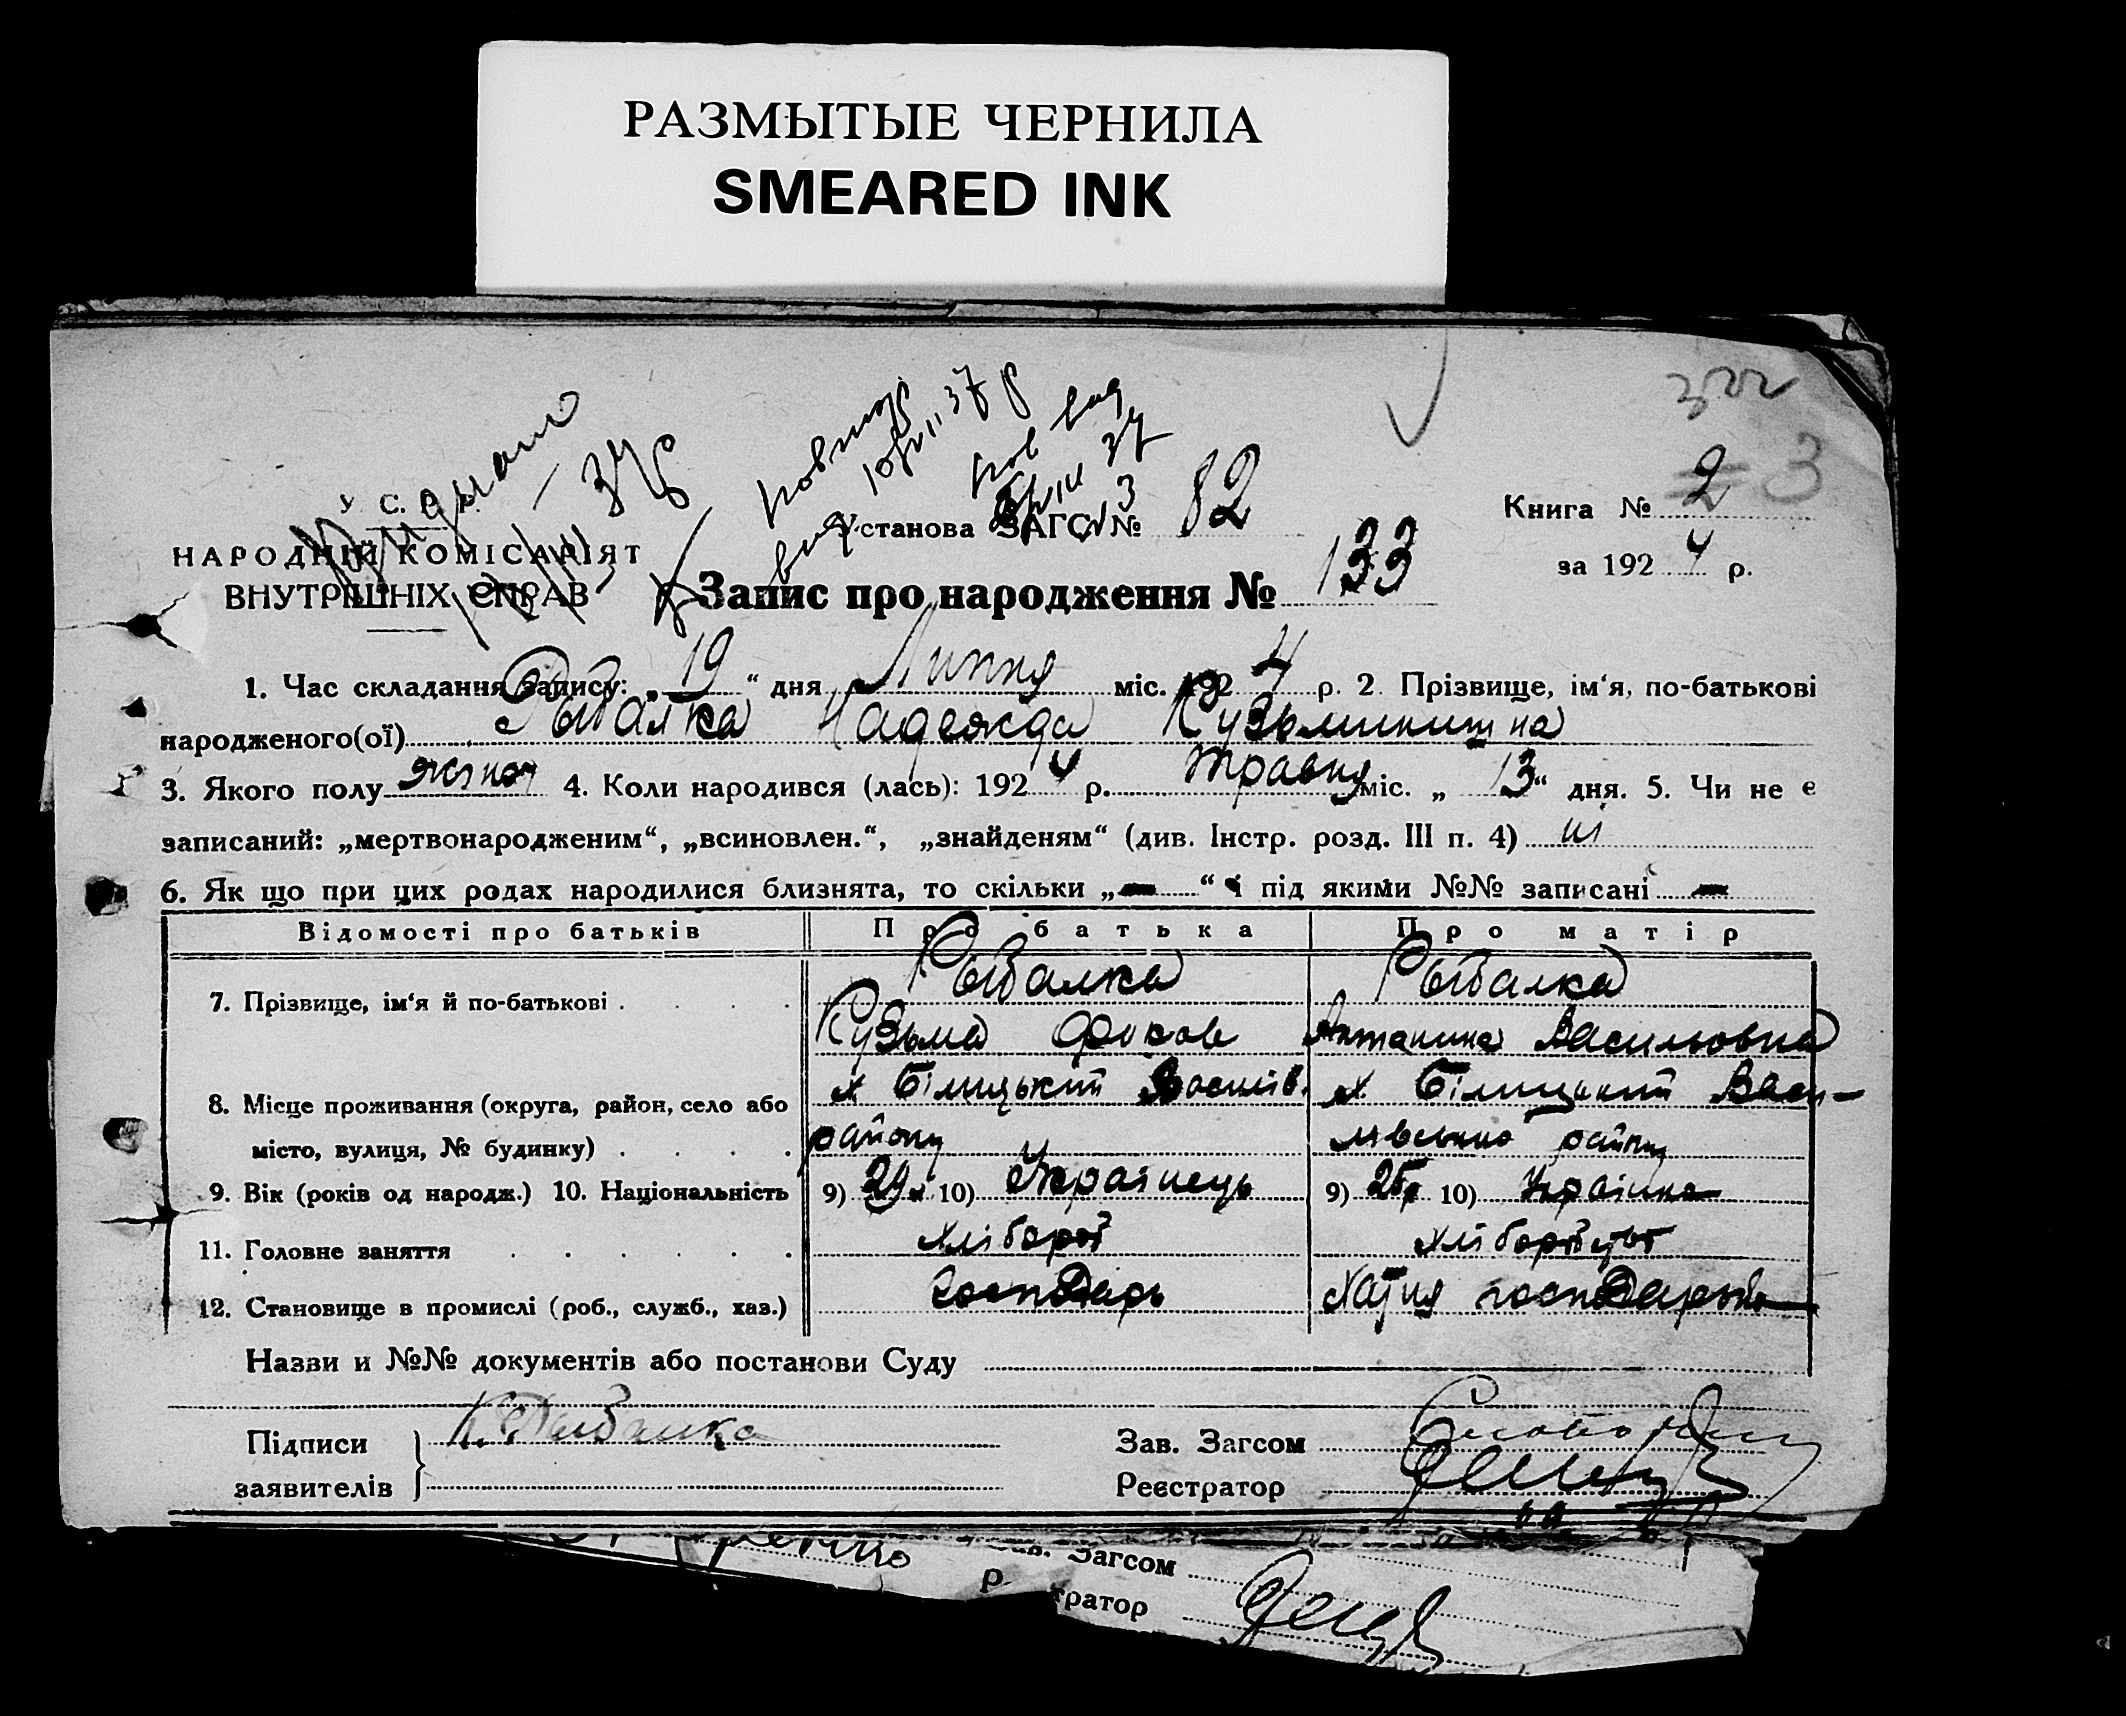 РАЗМЫТЫЕ ЧЕРНИЛА
SMEARED INK
322
3
У. С. Р. Р.
НАРОДНІЙ КОМІСАРІЯТ
ВНУТРІШНІХ СПРАВ
Установа ЗАГС'у № 82
Книга № 2
за 1924 р.
Запис про народження № 133
1. Час складання запису: „ 19 “ дня Липня міс. 1924 р. 2. Прізвище, ім‘я, по-батькові
народженого(ої) Рыбалка Надежда Кузьминишна
3. Якого полу жіноч 4. Коли народився (лась): 1924 р. травня міс. „ 13 “ дня. 5. Чи не є
записаний: „мертвонародженим“, „всиновлен.“, „знайденям“ (див. Інстр. розд. III п. 4) ні
6. Як що при цих родах народилися близнята, то скільки „ — “ і під якими №№ записані —
Відомості про батьків Про батька Про матір
7. Прізвище, ім‘я й по-батькові Рыбалка Рыбалка
Кузьма Фоков Антонина Васильовна
8. Місце проживання (округа, район, село або х Білицький Василів. х. Білицький Васи-
місто, вулиця, № будинку) району лівського району
9. Вік (років од народж.) 10. Національність 9) 29 10) Українець 9) 25 10) Українка
11. Головне заняття хлібороб хліборобство
12. Становище в промислі (роб., служб., хаз.) Господарь Хатня господарька
Назви и №№ документів або постанови Суду
Підписи К. Рыбалка Зав. Загсом
заявителів Реєстратор
Загсом
тратор